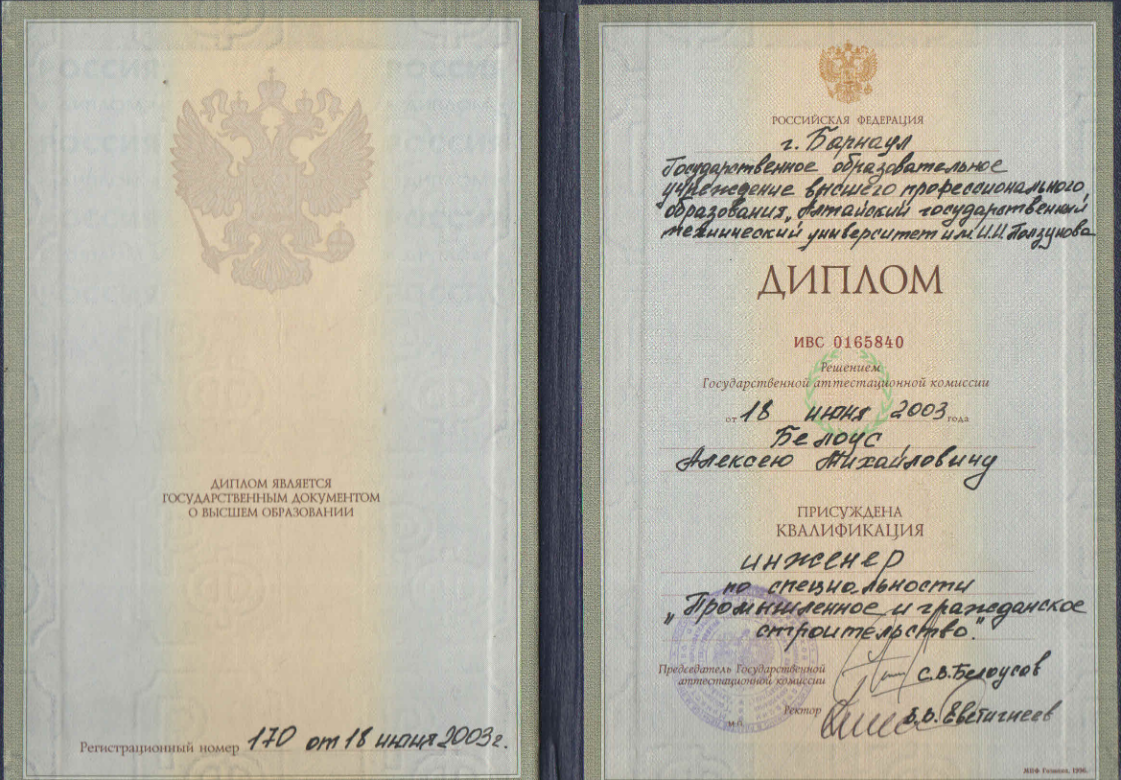 ДИПЛОМ ЯВЛЯЕТСЯ
ГОСУДАРСТВЕННЫМ ДОКУМЕНТОМ
О ВЫСШЕМ ОБРАЗОВАНИИ
Регистрационный номер 170 от 18 июня 2003г.
РОССИЙСКАЯ ФЕДЕРАЦИЯ
г. Барнаул
Государственное образовательное
учреждение высшего профессионального
образования „Алтайский государственный
технический университет им И.И. Ползунова
ДИПЛОМ
ИВС 0165840
Решением
Государственной аттестационной комиссии
от 18 июня 2003 года
Белоус
Алексею Михайловичу
ПРИСУЖДЕНА
КВАЛИФИКАЦИЯ
инженер
по специальности
„Промышленное и гражданское
строительство."
Председатель Государственной
аттестационной комиссии С.В. Белоусов
Ректор В.В. Евстигнеев